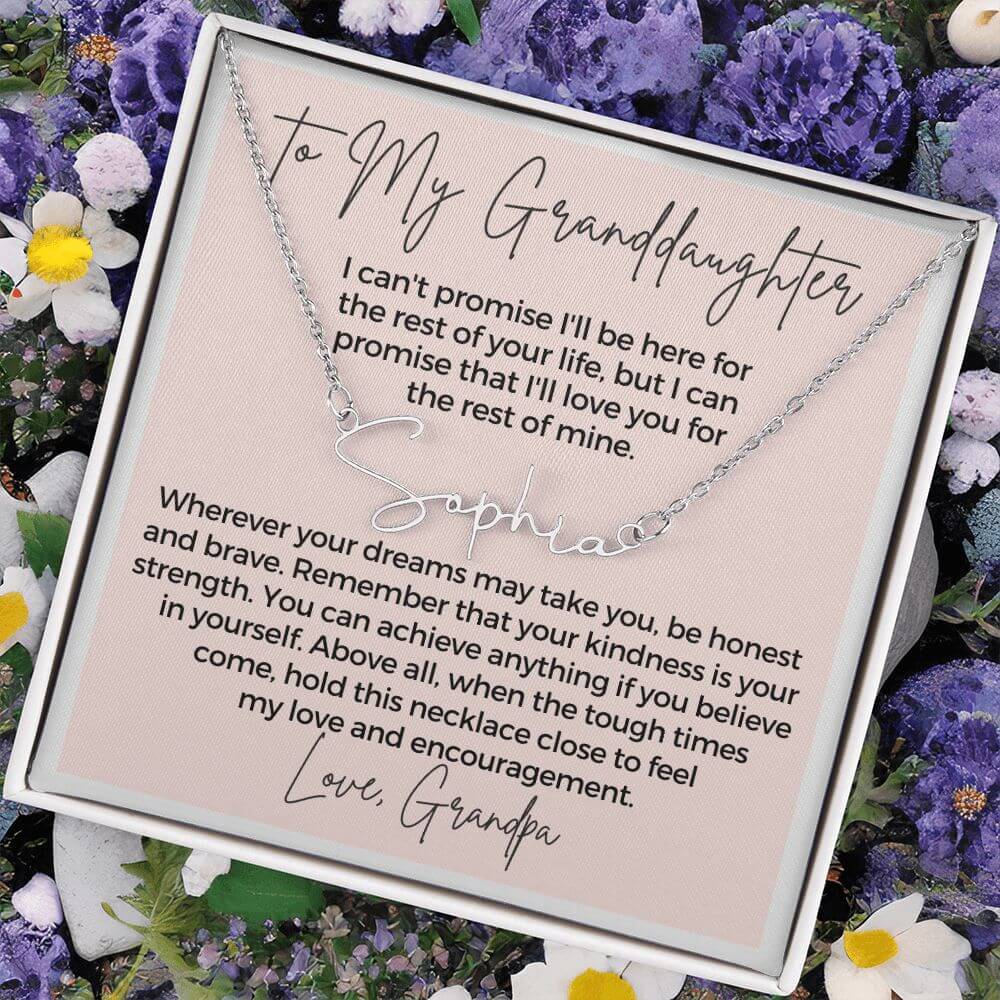 to My Granddaughter
I can't promise I'll be here for
the rest of your life, but I can
promise that I'll love you for
the rest of mine.
Sophia
Wherever your dreams may take you, be honest
and brave. Remember that your kindness is your
strength. You can achieve anything if you believe
in yourself. Above all, when the tough times
come, hold this necklace close to feel
my love and encouragement.
Love, Grandpa